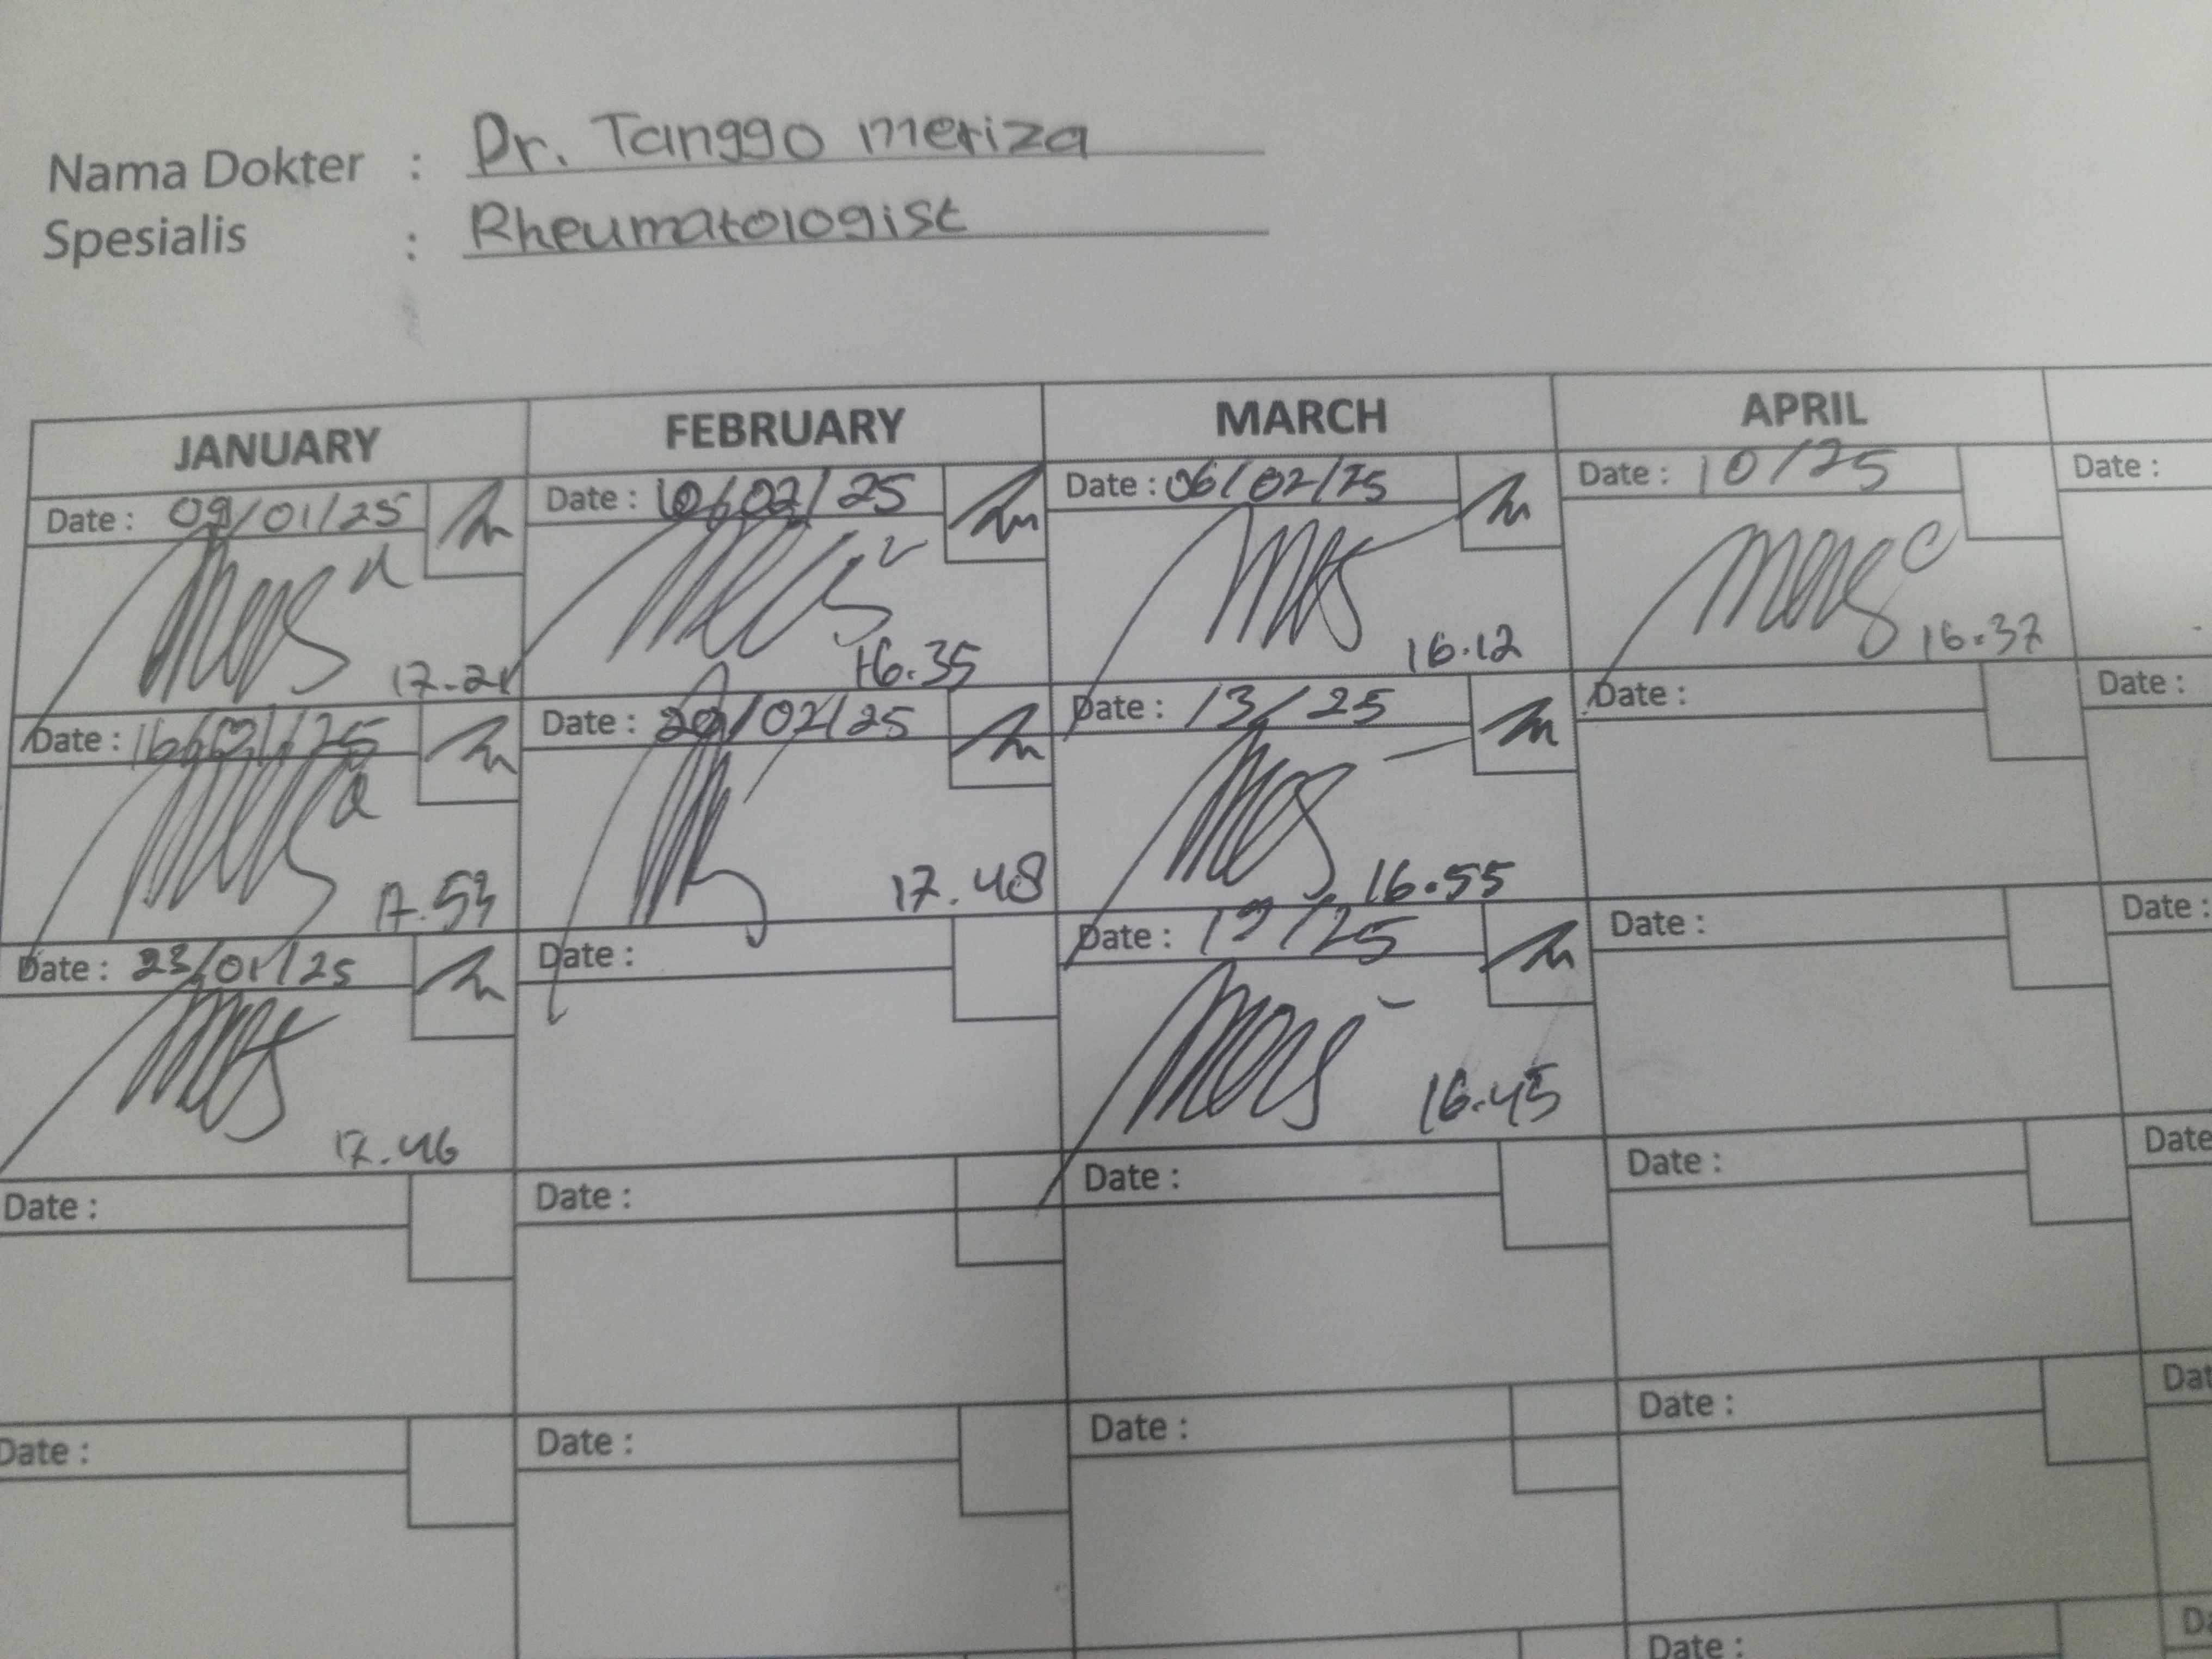 Nama Dokter : Dr. Tanggo Meriza
Spesialis : Rheumatologist
JANUARY FEBRUARY MARCH APRIL
Date : 09/01/25 Date : 10/02/25 Date : 06/02/25 Date : 10/25 Date :
17.21 16.35 16.12 16.37
Date : 16/01/25 Date : 20/02/25 Date : 13/25 Date : Date :
17.53 17.48 16.55
Date : 23/01/25 Date : Date : 19/25 Date : Date :
17.46 16.45
Date : Date : Date : Date : Date
Date : Date : Date : Date : Dat
Date : Da